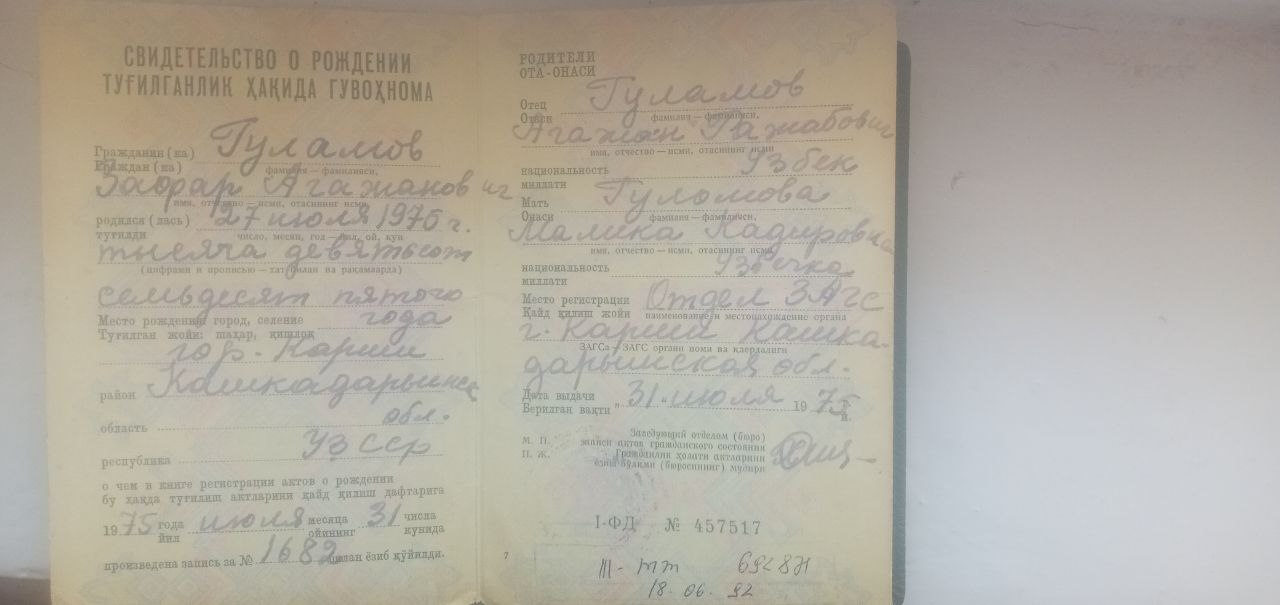 СВИДЕТЕЛЬСТВО О РОЖДЕНИИ
ТУҒИЛГАНЛИК ҲАҚИДА ГУВОҲНОМА
Гражданин (ка) Гуламов
Граждан (ка) фамилия — фамилияси,
Зафар Агажанович
имя, отчество — исми, отасининг исми
родился (лась) 27 июля 1975 г.
туғилди число, месяц, год — йил, ой, кун
тысяча девятьсот
(цифрами и прописью — хат билан ва рақамларда)
семьдесят пятого
Место рождения: город, селение года
Туғилган жойи: шаҳар, қишлоқ
гор. Карши
район Кашкадарьинск
обл.
область
УзССР
республика
о чем в книге регистрации актов о рождении
бу ҳақда туғилиш актларини қайд қилиш дафтарига
1975 года июля месяца 31 числа
йил ойининг кунида
произведена запись за № 1682 билан ёзиб қўйилди.
РОДИТЕЛИ
ОТА-ОНАСИ
Отец Гуламов
Отаси фамилия — фамилияси,
Агажан Ражабович
имя, отчество — исми, отасининг исми
национальность узбек
миллати
Мать Гуломова
Онаси фамилия — фамилияси,
Малика Кадировна
имя, отчество — исми, отасининг исми
национальность узбечка
миллати
Место регистрации Отдел ЗАГС
Қайд қилиш жойи наименование и местонахождение органа
г. Карши Кашка-
ЗАГСа — ЗАГС органи номи ва қаердалиги
дарьинская обл.
Дата выдачи „31“ июля 1975
Берилган вақти й.
Заведующий отделом (бюро)
М. П. записи актов гражданского состояния
П. Ж. Гражданлик ҳолати актларини
ёзиш бўлими (бюросининг) мудири
I-ФД № 457517
7
III-тт 692871
18.06.92